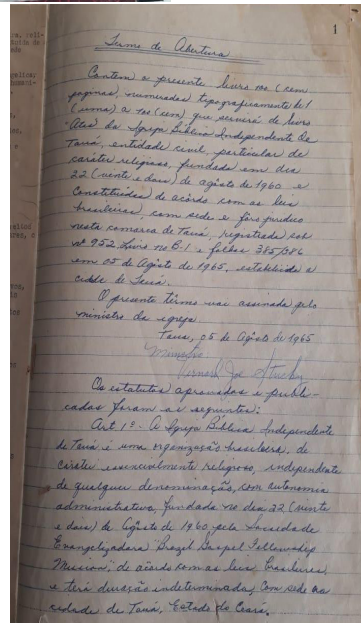 1
Termo de Abertura
Contem o presente livro 100 (cem
paginas, numeradas tipograficamente de 1
(uma) a 100 (cem) que servirá de livro
"Atas" da Igreja Bíblica Independente de
Tauá, entidade civil, particular de
caráter religioso, fundada em dia
22 (vinte e dois) de agôsto de 1960 e
Constituídas de acôrdo com as leis
brasileiras, com sede e fôro jurídico
nesta comarca de Tauá, registrada sob
nº 952 Livro no B.1 e folhas 385/386
em 05 de Agôsto de 1965, estabelecida a
cidade de Tauá.
O presente têrmo vai assinado pelo
ministro da igreja.
Taua, 05 de Agôsto de 1965
Ministro
Stucky
Os estatutos aprovados e publi-
cados foram os seguintes:
Art. 1º - A Igreja Bíblica Independente
de Tauá é uma organização brasileira, de
caráter essencialmente religioso, independente
de qualquer denominação, com autonomia
administrativa, fundada no dia 22 (vinte
e dois) de Agôsto de 1960, pela Sociedade
Evangelizadora "Brazil Gospel Fellowship
Mission", de acôrdo com as leis brasileiras
e terá duração indeterminada, com sede na
cidade de Tauá, Estado do Ceará.